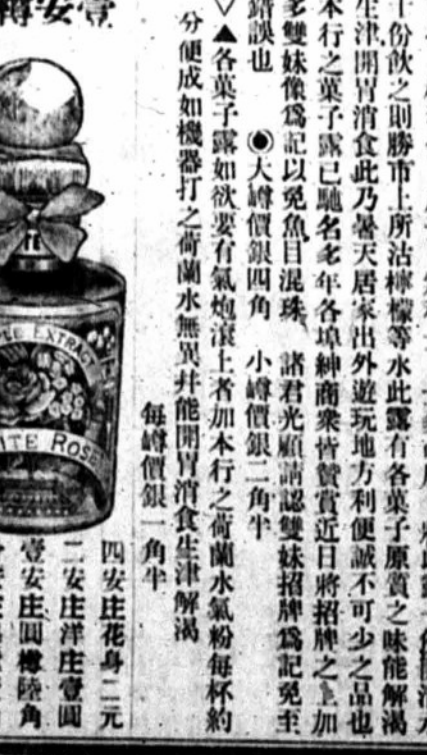 十份飲之則勝市上所沽檸檬等水此露有各菓子原質之味能解渴
生津開胃消食此乃暑天居家出外遊玩地方利便誠不可少之品也
本行之菓子露已馳名多年各埠紳商衆皆贊賞近日將招牌之上加
多雙妹像爲記以免魚目混珠 諸君光顧請認雙妹招牌爲記免至
錯誤也 大罇價銀四角 小罇價銀二角半
▲各菓子露如欲要有氣炮滾上者加本行之荷蘭水氣粉每杯約
分便成如機器打之荷蘭水無異并能開胃消食生津解渴
每罇價銀一角半
四安庄花身二元
二安庄洋庄壹圓
壹安庄圓樽陸角
壹安
EXTRACT
WHITE ROSE